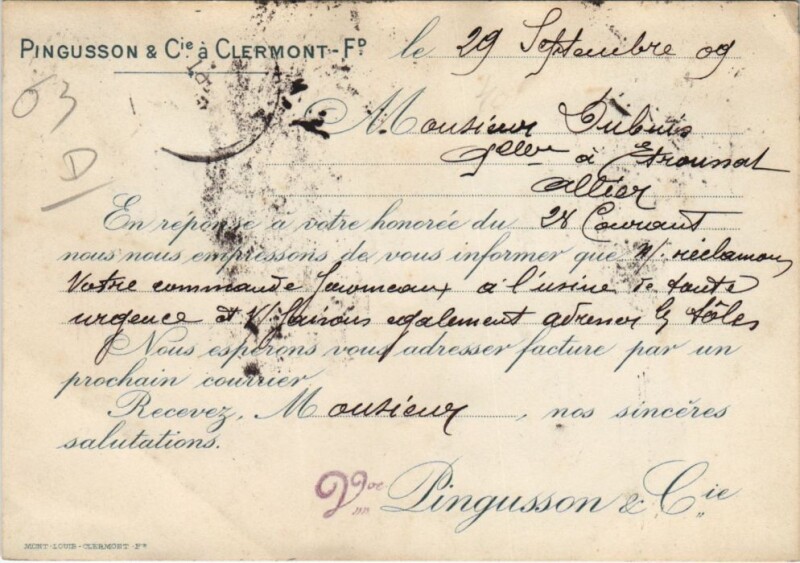 PINGUSSON & Cie à CLERMONT-FD le 29 Septembre 09
63
D
Monsieur Dubuis
à Etroussat
Allier
En réponse à votre honorée du 28 Courant
nous nous empressons de vous informer que N/. réclamons
Votre commande à l'usine de toute
urgence et V/. faisons egalement adresser les tôles
Nous espérons vous adresser facture par un
prochain courrier
Recevez, Monsieur, nos sincères
salutations.
Vve Pingusson & Cie
MONT-LOUIS-CLERMONT-FD